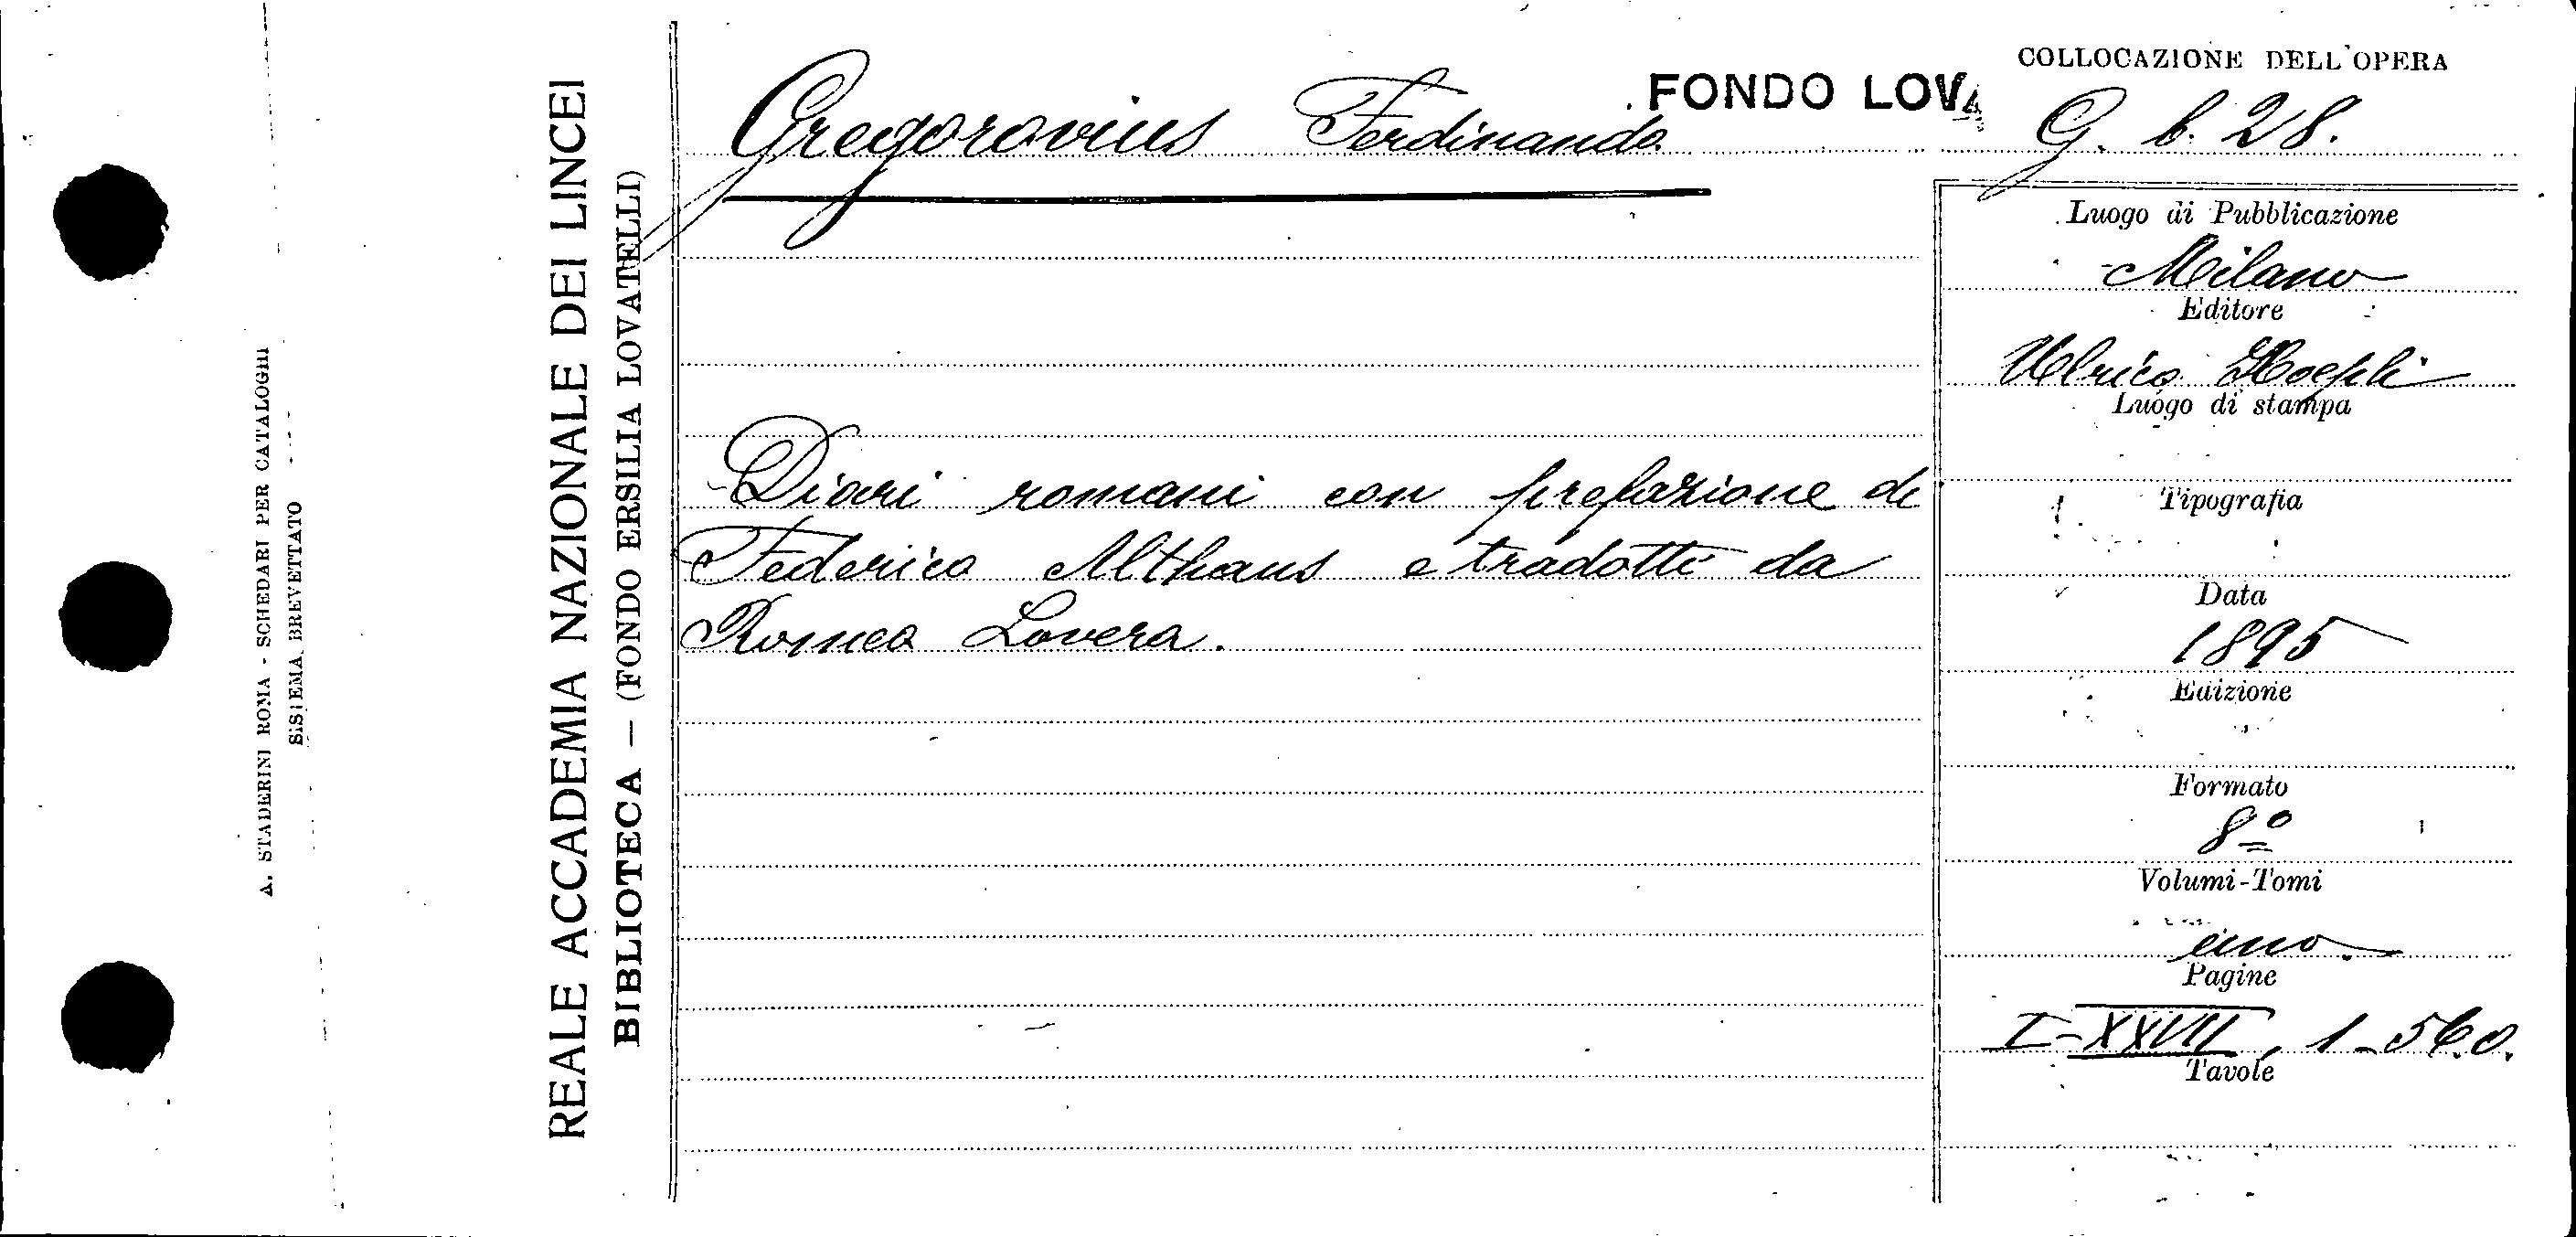 A. STADERINI ROMA - SCHEDARI PER CATALOGHI
SISTEMA BREVETTATO
REALE ACCADEMIA NAZIONALE DEI LINCEI
BIBLIOTECA — (FONDO ERSILIA LOVATELLI)
Gregorovius Ferdinando
FONDO LOVA
Diari romani con prefazione di
Federico Althaus e tradotti da
Romeo Lovera.
COLLOCAZIONE DELL'OPERA
G. b. 28.
Luogo di Pubblicazione
Milano
Editore
Ulrico Hoepli
Luogo di stampa
Tipografia
Data
1895
Edizione
Formato
8º
Volumi-Tomi
uno.
Pagine
I-XXVII, 1-560.
Tavole